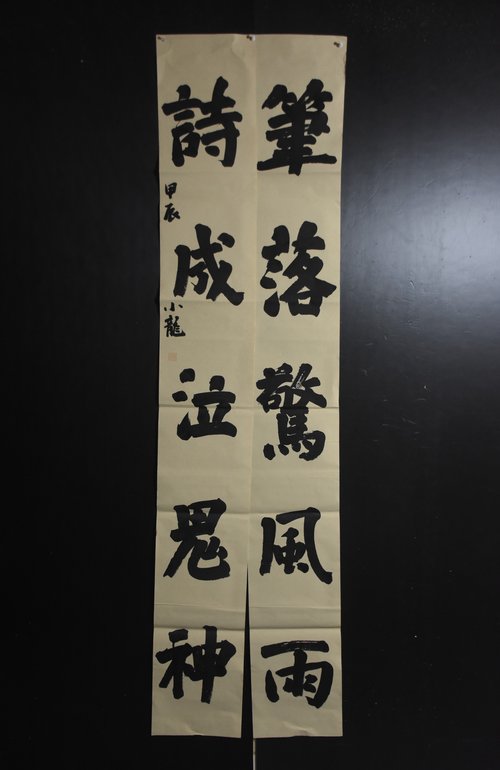 筆落驚風雨
詩成泣鬼神
甲辰
小龍